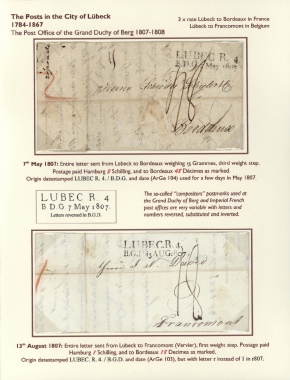 The Posts in the City of Lübeck
1784-1867
The Post Office of the Grand Duchy of Berg 1807-1808
3 x rate Lübeck to Bordeaux in France
Lübeck to Francomont in Belgium
LUBEC R. 4
B.D.G 7 May 1807.
Bordeaux
7th May 1807: Entire letter sent from Lübeck to Bordeaux weighing 15 Grammes, third weight step.
Postage paid Hamburg Schilling, and to Bordeaux 48 Décimes as marked.
Origin datestamped LUBEC R. 4 / B.D.G. and date (ArGe 104) used for a few days in May 1807.
LUBEC R. 4
B D.G 7 May 1807.
Letters reversed in B.G.D.
The so-called "compositors" postmarks used at
the Grand Duchy of Berg and Imperial French
post offices are very variable with letters and
numbers reversed, substituted and inverted.
LUBEC.R.4.
B.G.D. 13 AUG. 1807
Francomont
13th August 1807: Entire letter sent from Lübeck to Francomont (Vervier), first weight step. Postage paid
Hamburg Schilling, and to Décimes as marked.
Origin datestamped LUBEC R. 4 / B.G.D. and date (ArGe 103), but with letter r instead of 1 in r807.